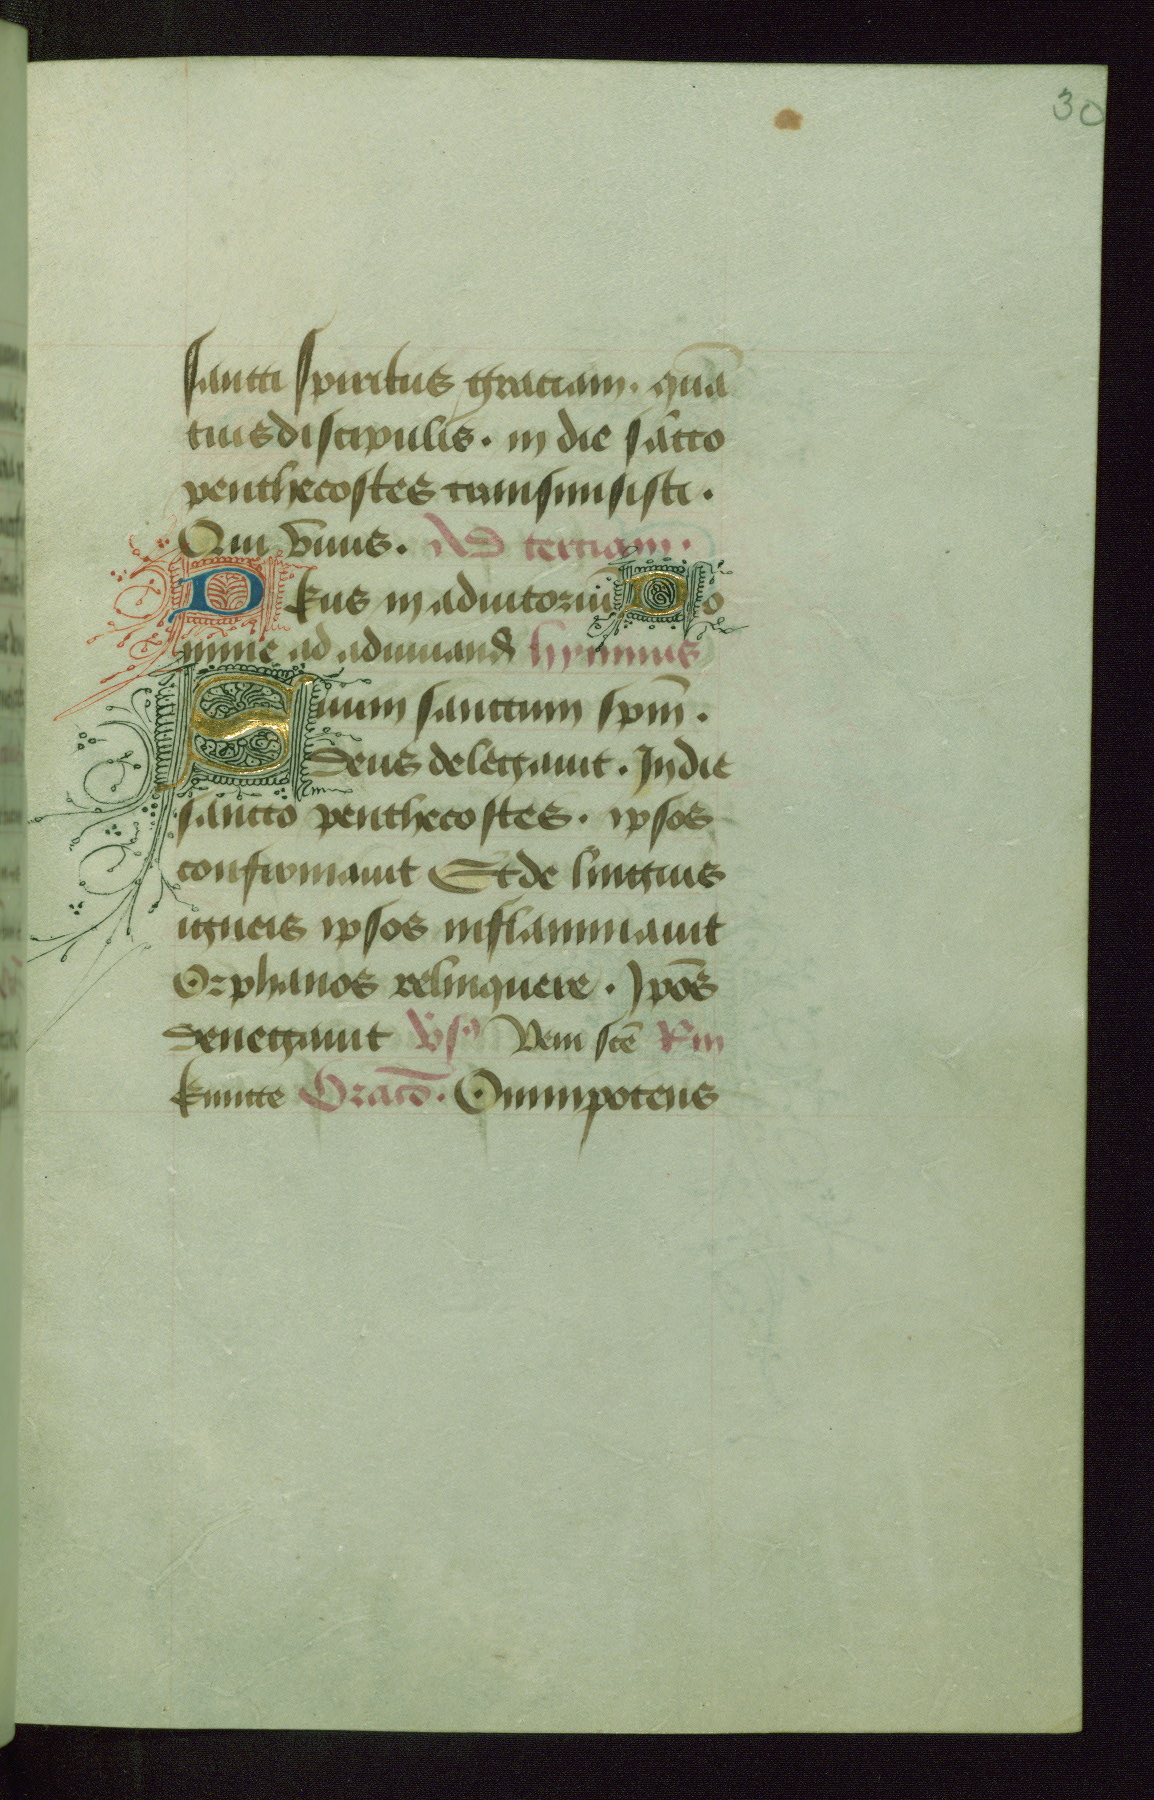 30
sancti spiritus graciam. quā
tuis discipulis. in die sācto
penthecostes transmisisti.
Qui viuus. Ad terciam.
Deus in adiutoriū Do
mine ad adiuuand hymnus
Suum sanctum spm̄.
Deus delegauit. In die
sancto penthecostes. ipsos
confirmauit Et de linguis
igneis ipsos inflammauit
Orphanos relinquere. Ipōs
denegauit Veni scē
Oracō. Omnipotens